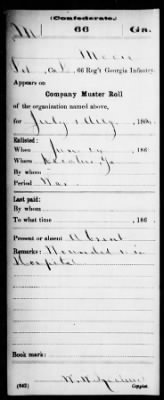 (Confederate.)
M 66 Ga.
Moon
Pvt, Co. , 66 Reg't Georgia Infantry.
Appears on
Company Muster Roll
of the organization named above,
for July & Aug, 186
Enlisted:
When , 186
Where Decatur, Ga
By whom
Period War
Last paid:
By whom
To what time , 186
Present or absent Absent
Remarks: Wounded in
Hospital
Book mark:
(642)
Copyist.